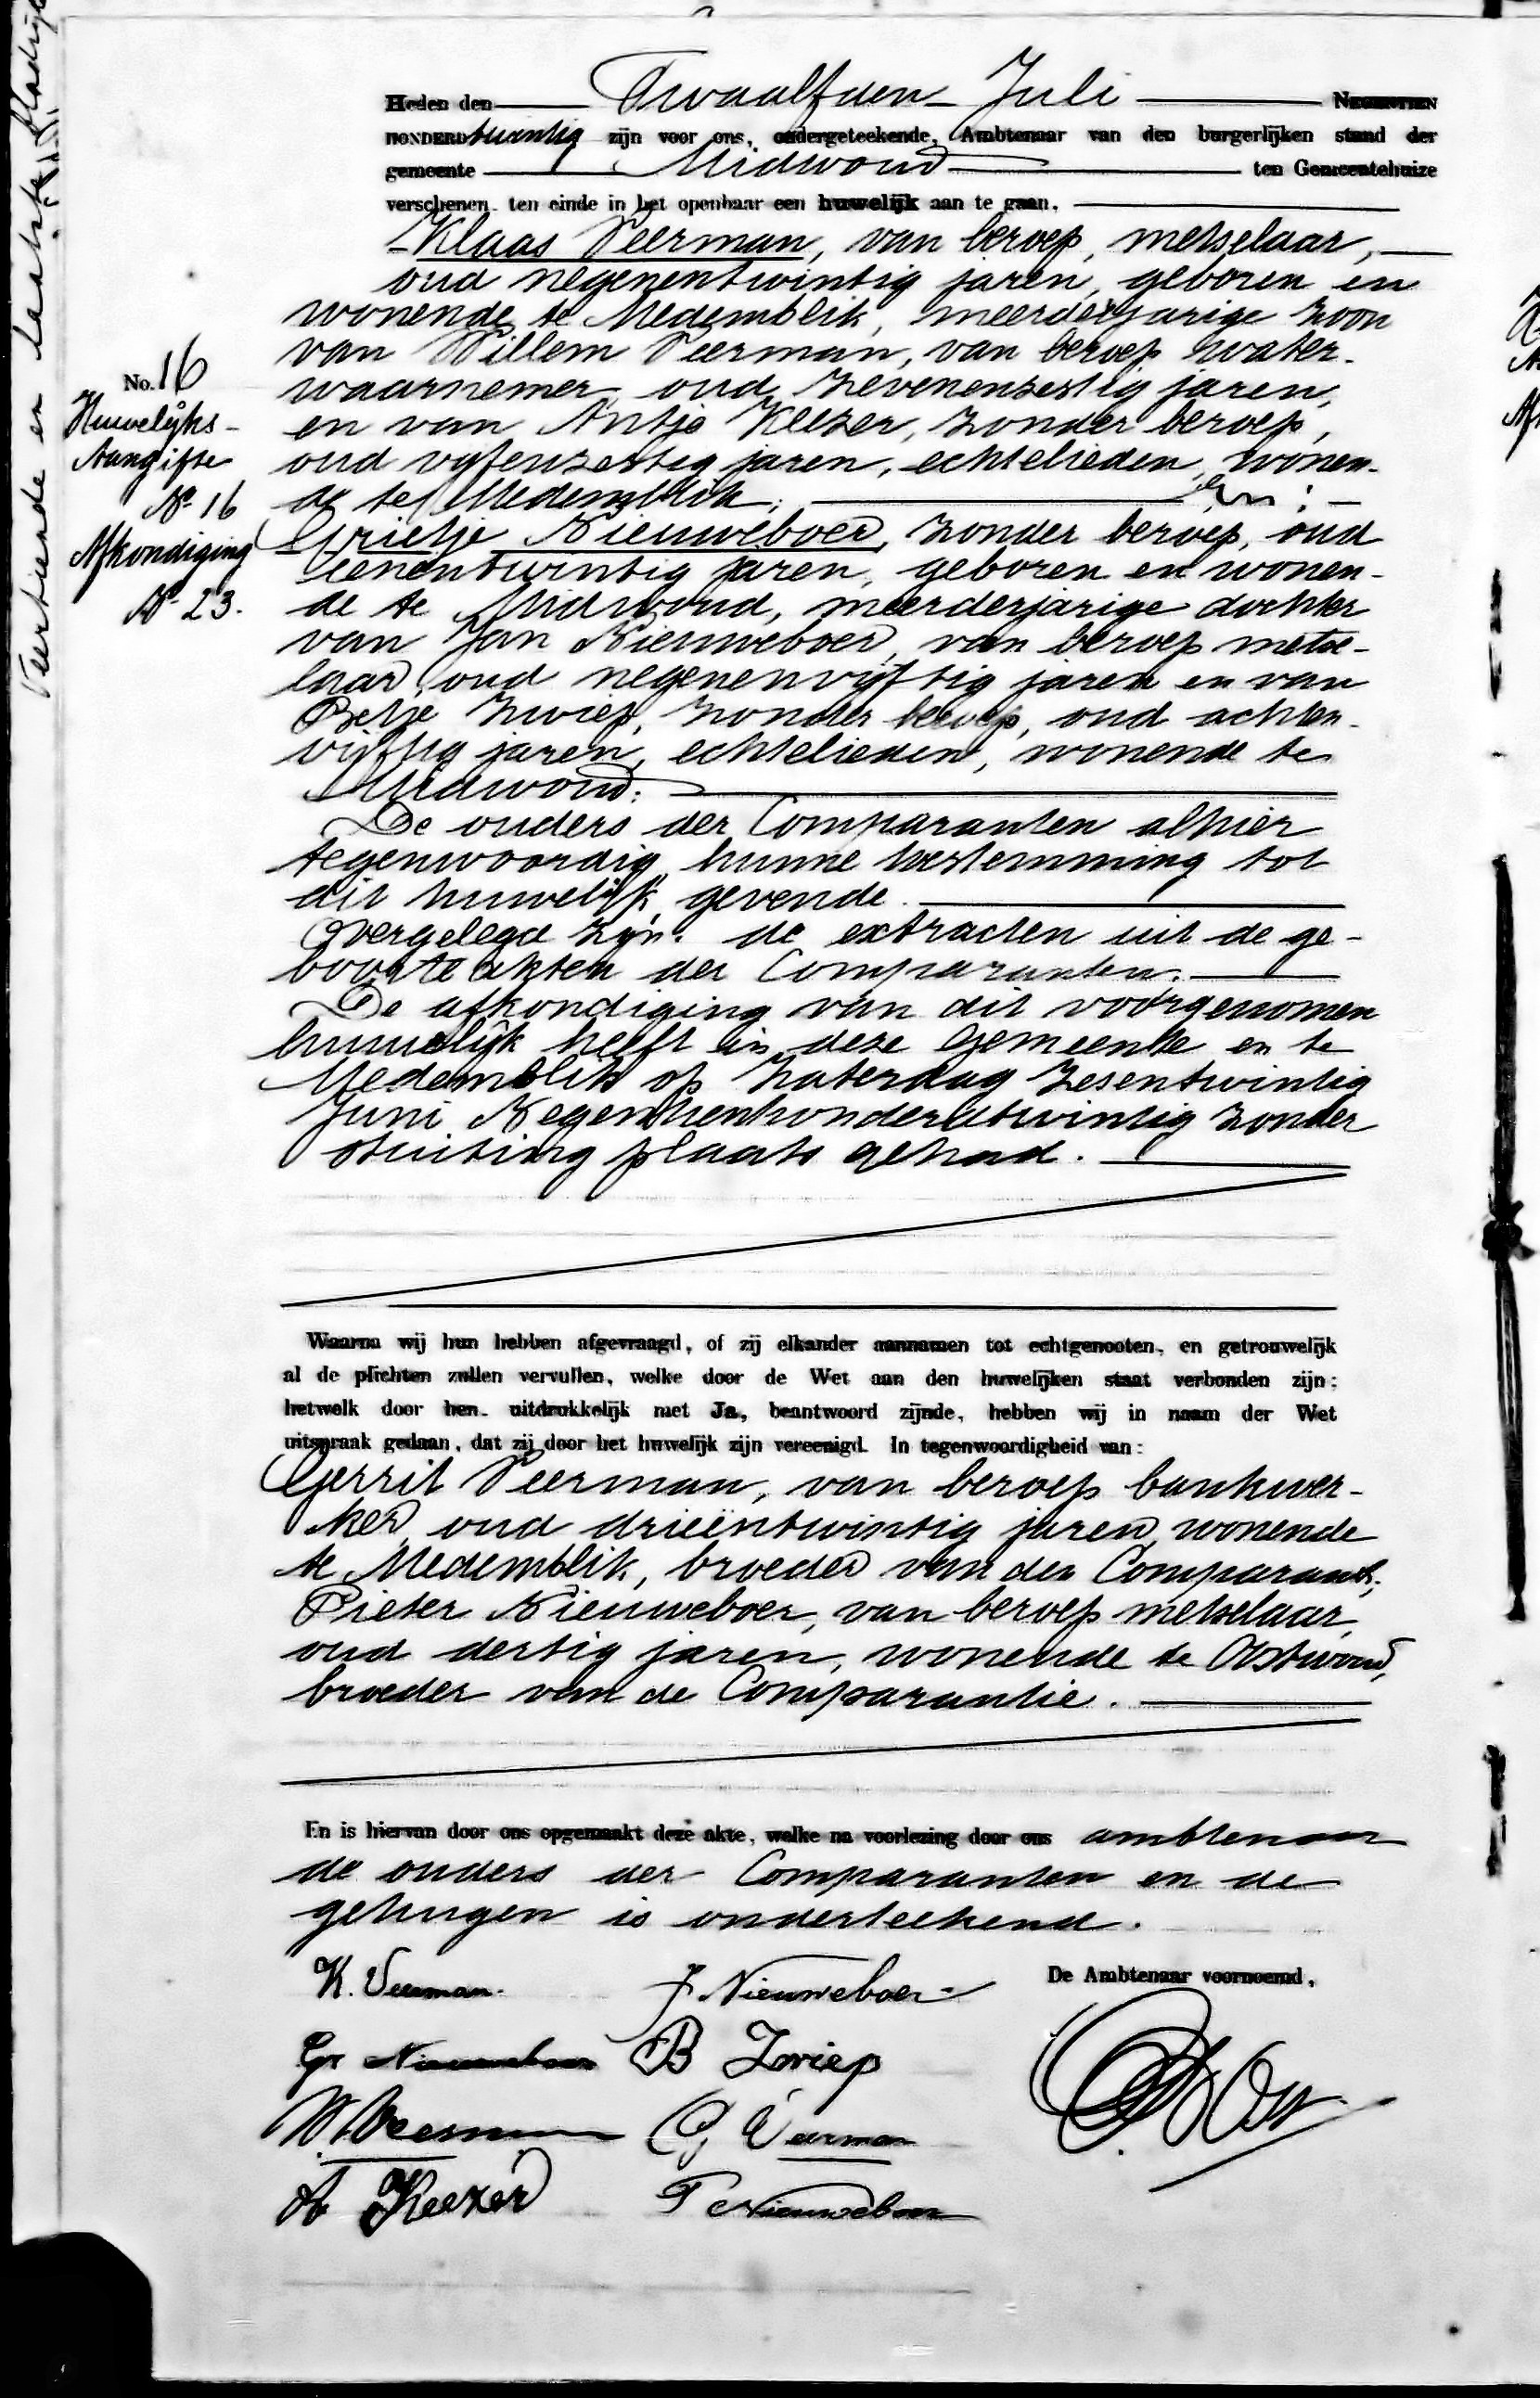 Heden den Twaalfden Juli NEGENTIEN
HONDERD twintig zijn voor ons, ondergeteekende, Ambtenaar van den burgerlijken stand der
gemeente Midwoud ten Gemeentehuize
verschenen ten einde in het openbaar een huwelijk aan te gaan,
Klaas Veerman, van beroep, metselaar,
oud negenentwintig jaren, geboren en
wonende te Medemblik, meerderjarige zoon
van Willem Veerman, van beroep water-
waarnemer oud zevenenzestig jaren,
en van Antje Keezer, zonder beroep,
oud vijfenzestig jaren, echtelieden, wonen-
de te Medemblik; En:
Grietje Nieuweboer, zonder beroep, oud
eenentwintig jaren, geboren en wonen-
de te Midwoud, meerderjarige dochter
van Jan Nieuweboer, van beroep metse-
laar, oud negenenvijftig jaren en van
Betje Zwiep, zonder beroep, oud achten-
vijftig jaren, echtelieden, wonende te
Midwoud.
De ouders der Comparanten alhier
tegenwoordig hunne toestemming tot
dit huwelijk gevende.
Overgelegd zijn: de extracten uit de ge-
boorteakten der Comparanten.
De afkondiging van dit voorgenomen
huwelijk heeft in deze Gemeente en te
Medemblik op Zaterdag zesentwintig
Juni Negentienhonderdtwintig zonder
stuiting plaats gehad.
No. 16
Huwelijks-
Aangifte
No 16
Afkondiging
No 23.
Veertiende en laatste bladzijde
Waarna wij hun hebben afgevraagd, of zij elkander aannamen tot echtgenooten, en getrouwelijk
al de plichten zullen vervullen, welke door de Wet aan den huwelijken staat verbonden zijn;
hetwelk door hen uitdrukkelijk met Ja, beantwoord zijnde, hebben wij in naam der Wet
uitspraak gedaan, dat zij door het huwelijk zijn vereenigd. In tegenwoordigheid van:
Gerrit Veerman, van beroep bankwer-
ker, oud drieëntwintig jaren, wonende
te Medemblik, broeder van den Comparant;
Pieter Nieuweboer, van beroep metselaar,
oud dertig jaren, wonende te Oostwoud,
broeder van de Comparantie.
En is hiervan door ons opgemaakt deze akte, welke na voorlezing door ons ambtenaar
de ouders der Comparanten en de
getuigen is onderteekend.
K. Veerman. J. Nieuweboer De Ambtenaar voornoemd,
Gr Nieuweboer B Zwiep
W. Veerman G Veerman
A Keezer P Nieuweboer